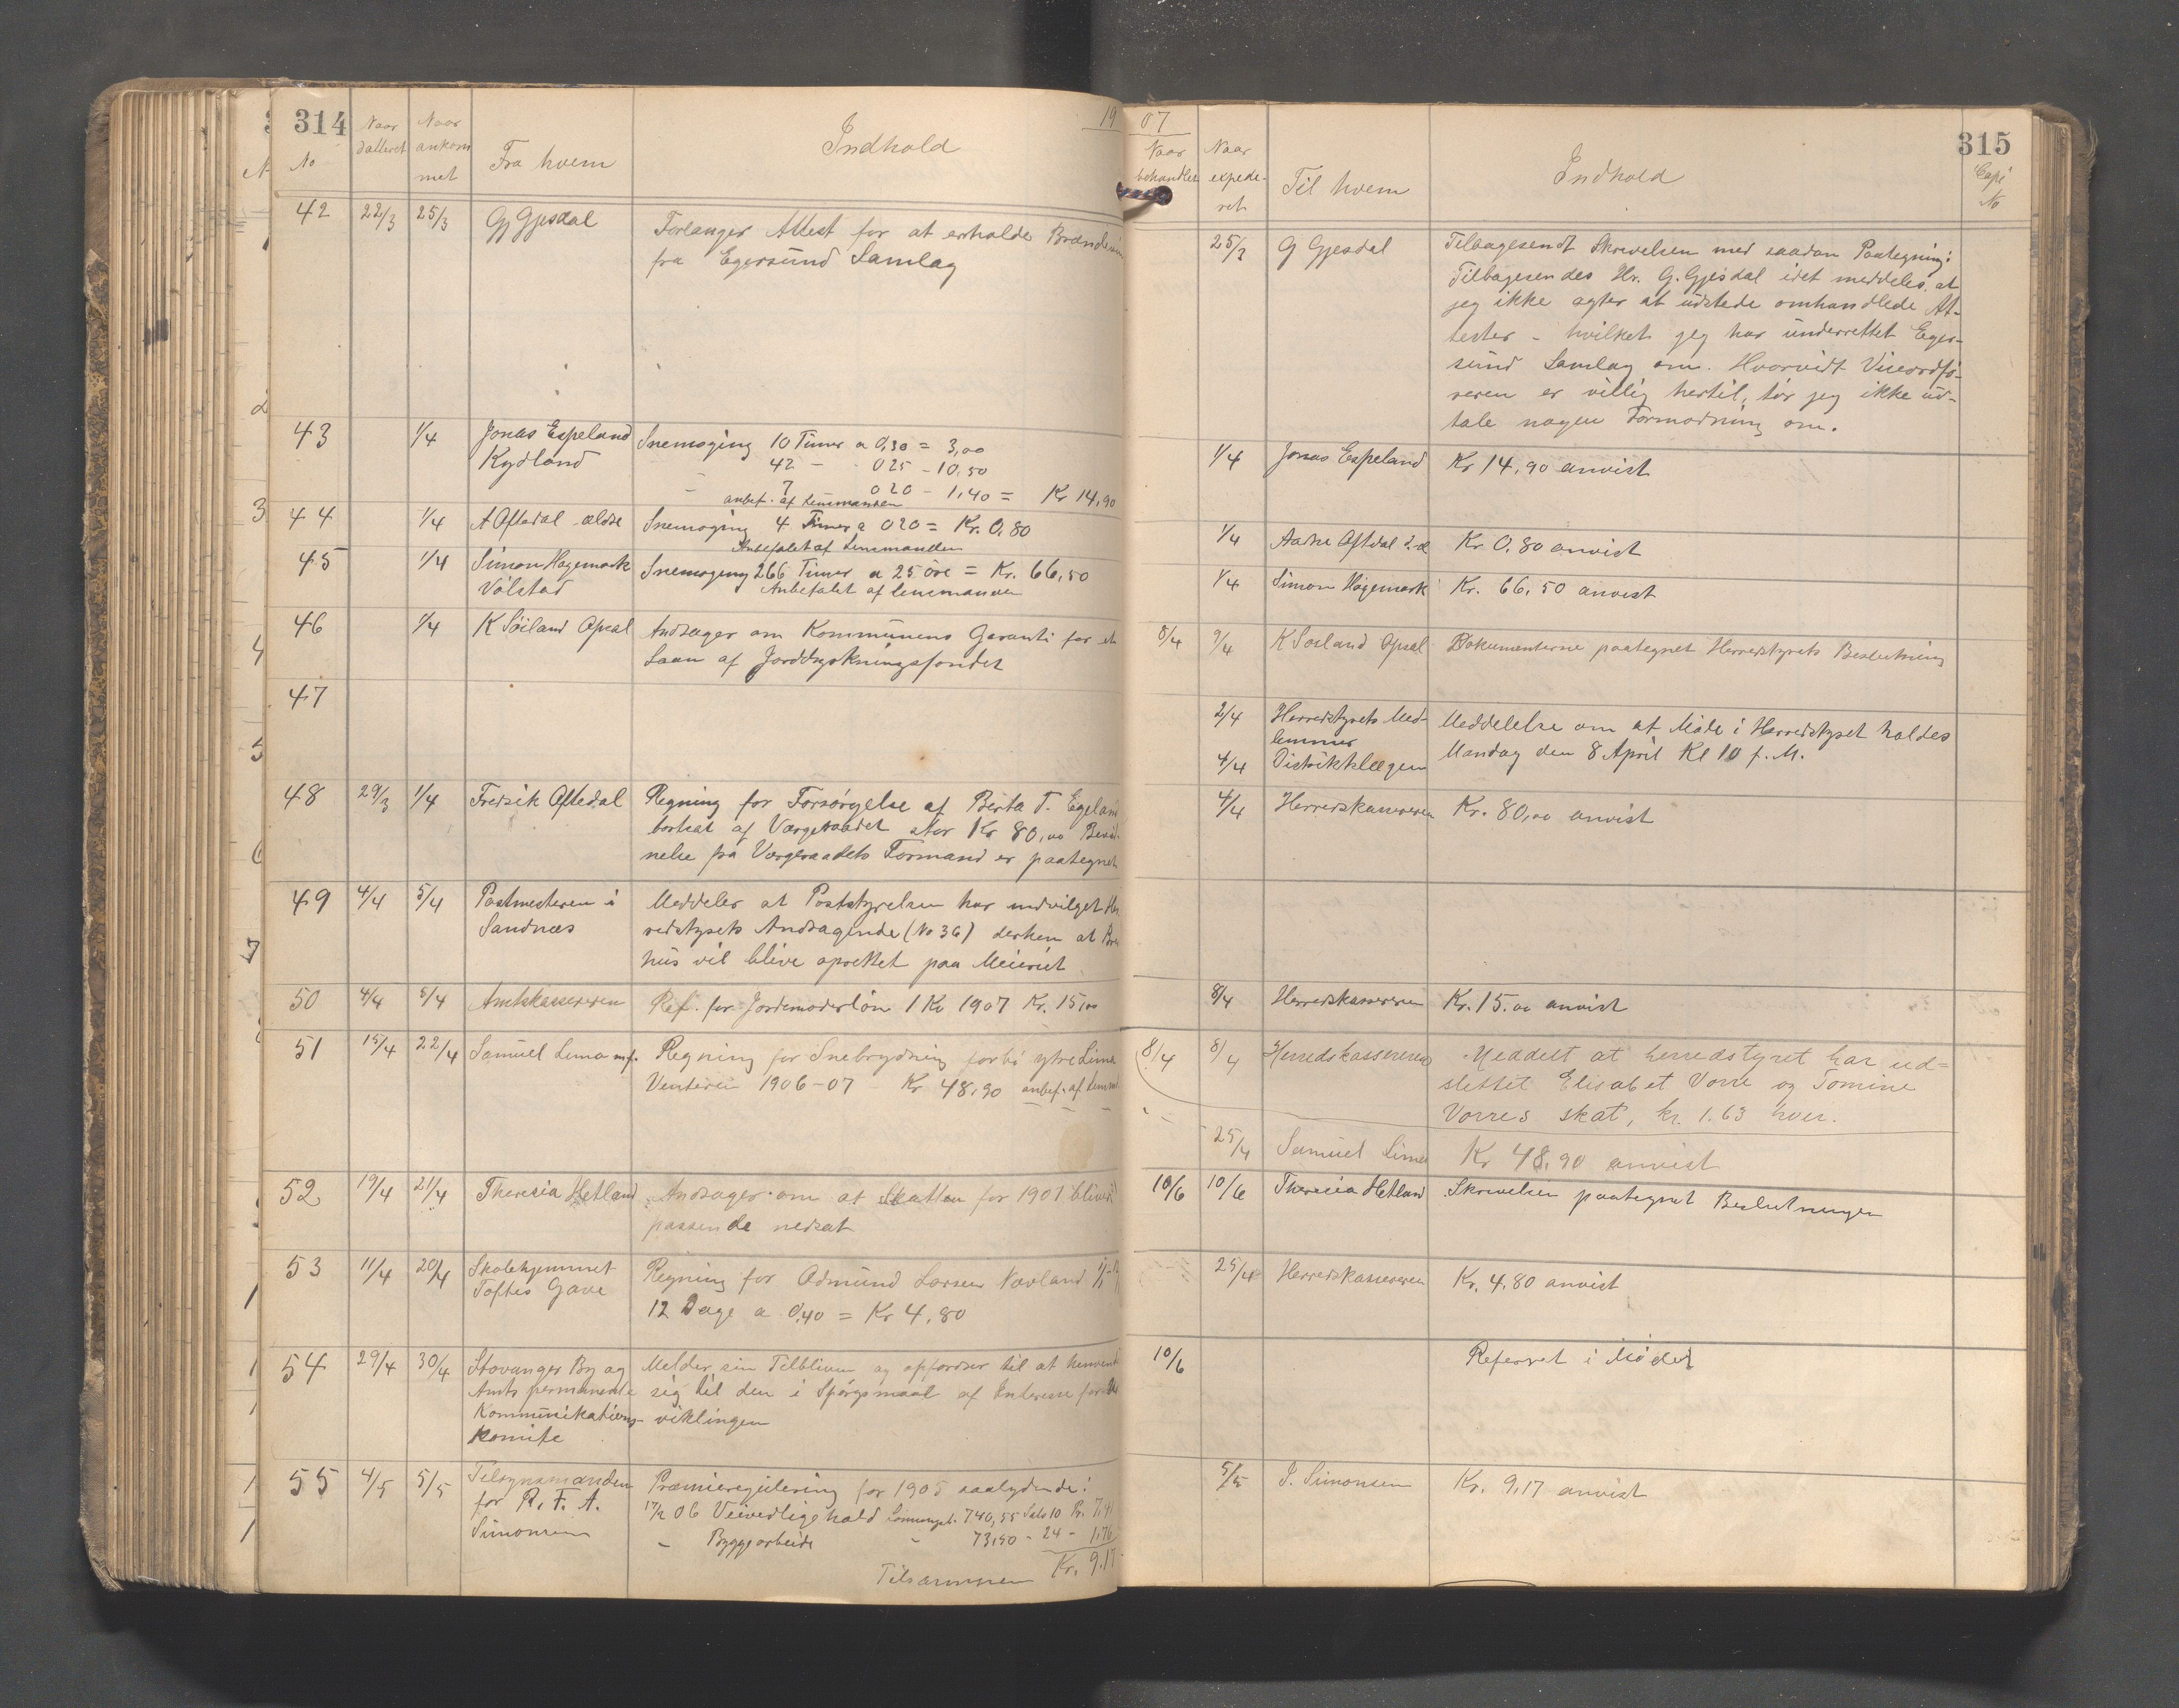 314
No
Naar dalleret
Naar ankommet
Fra hvem
Indhold
19
42 22/3 25/3 Gj Gjesdal Forlanger Attest for at erholde Brændevin
fra Egersund Samlag
43 1/4 Jonas Espeland Snemoging 10 Timer a 0,30 = 3,00
Kydland 42 - 025 - 10,50
- 7 020 - 1,40 = Kr 14,90
anbef. af Lensmanden
44 1/4 A Oftedal ældre Snemoging 4 Timer a 020 = Kr. 0,80
Anbefalet af Lensmanden
45 1/4 Simon Hagemark Snemoging 266 Timer a 25 öre = Kr. 66,50
Vølstad Anbefalet af lensmanden
46 1/4 K Söiland Opsal Andrager om Kommünens Garanti for et
Laan af Jorddyrkningsfondet
47
48 29/3 1/4 Fredrik Oftedal Regning for Forsørgelse af Berta T. Egeland
bortsat af Værgeraadet stor Kr 80,00
nelse fra Værgeraadets Formand er paategnet
49 4/4 5/4 Postmesteren i Meddeler at Poststyrelsen har indvilget Her
Sandnæs redstyrets Andragende (No 36) derhen at Brev
hüs vil blive oprettet paa Meieriet
50 4/4 8/4 Amtskassereren Ref. for Jordemoderlön 1 Kv 1907 Kr. 15,00
51 15/4 22/4 Samuel Lima m.f. Regning for Snebrydning forbi ytre Lima
Venteren 1906-07 - Kr 48,90 anbef. af Lensm
52 19/4 21/4 Theresia Hetland Andrager om at Skatten for 1907 bliver
passende nedsat
53 11/4 20/4 Skolehjemmet Regning for Odmünd Larsen Navland
Toftes Gave 12 Dage a 0,40 = Kr 4,80
54 29/4 30/4 Stavanger By og Melder sin Tilbliven og opfordrer til at henvend
Amts permanente sig til den i Spörgsmaal af Interesse for Ud
Kommünikations- viklingen
komite
55 4/5 5/5 Tilsynsmanden Præmieregülering for 1905 saalydende:
for R. F. A. 17/2 06 Veivedligehold Lönningsb. 740,55 Sats 10 Pr. 7,41
Simonsen - Byggearbeide - 73,50 - 24 - 1,76
Tilsammen Kr. 9.17
07
315
Naar behandlet
Naar expederet
Til hvem
Indhold
Copi No
25/3 G Gjesdal Tilbagesendt Skrivelsen med saadan Paategning:
Tilbagesendes Hr. G. Gjesdal idet meddeles at
jeg ikke agter at udstede omhandlede At-
tester - hvilket jeg har ünderrettet Eger-
sünd Samlag om. Hvorvidt Viceordfö-
reren er villig hertil, tör jeg ikke üd-
tale nogen Formodning om.
1/4 Jonas Espeland Kr 14,90 anvist
1/4 Aadne Oftdal d. æ Kr. 0,80 anvist
1/4 Simon Hagemark Kr. 66,50 anvist
8/4 9/4 K Soiland Opsal Dokumenterne paategnet Herredstyrets Beslutning
2/4 Herredstyrets Med- Meddelelse om at Möde i Herredstyret holdes
lemmer
4/4 Distriktslægen Mandag den 8 April Kl 10 f. M.
4/4 Herredskassereren Kr. 80,00 anvist
8/4 Herredskassereren Kr. 15.00 anvist
8/4 8/4 Herredskassereren Meddelt at herredstyret har ud=
slettet Elisabet Vorre og Tomine
Vorres skat, kr. 1.63 hver.
25/4 Samüel Lima Kr 48,90 anvist
10/6 10/6 Theresia Hetland Skrivelsen paategnet Beslutningen
25/4 Herredskassereren Kr. 4,80 anvist
10/6 Referert i Mödet
5/5 I. Simonsen Kr. 9,17 anvist